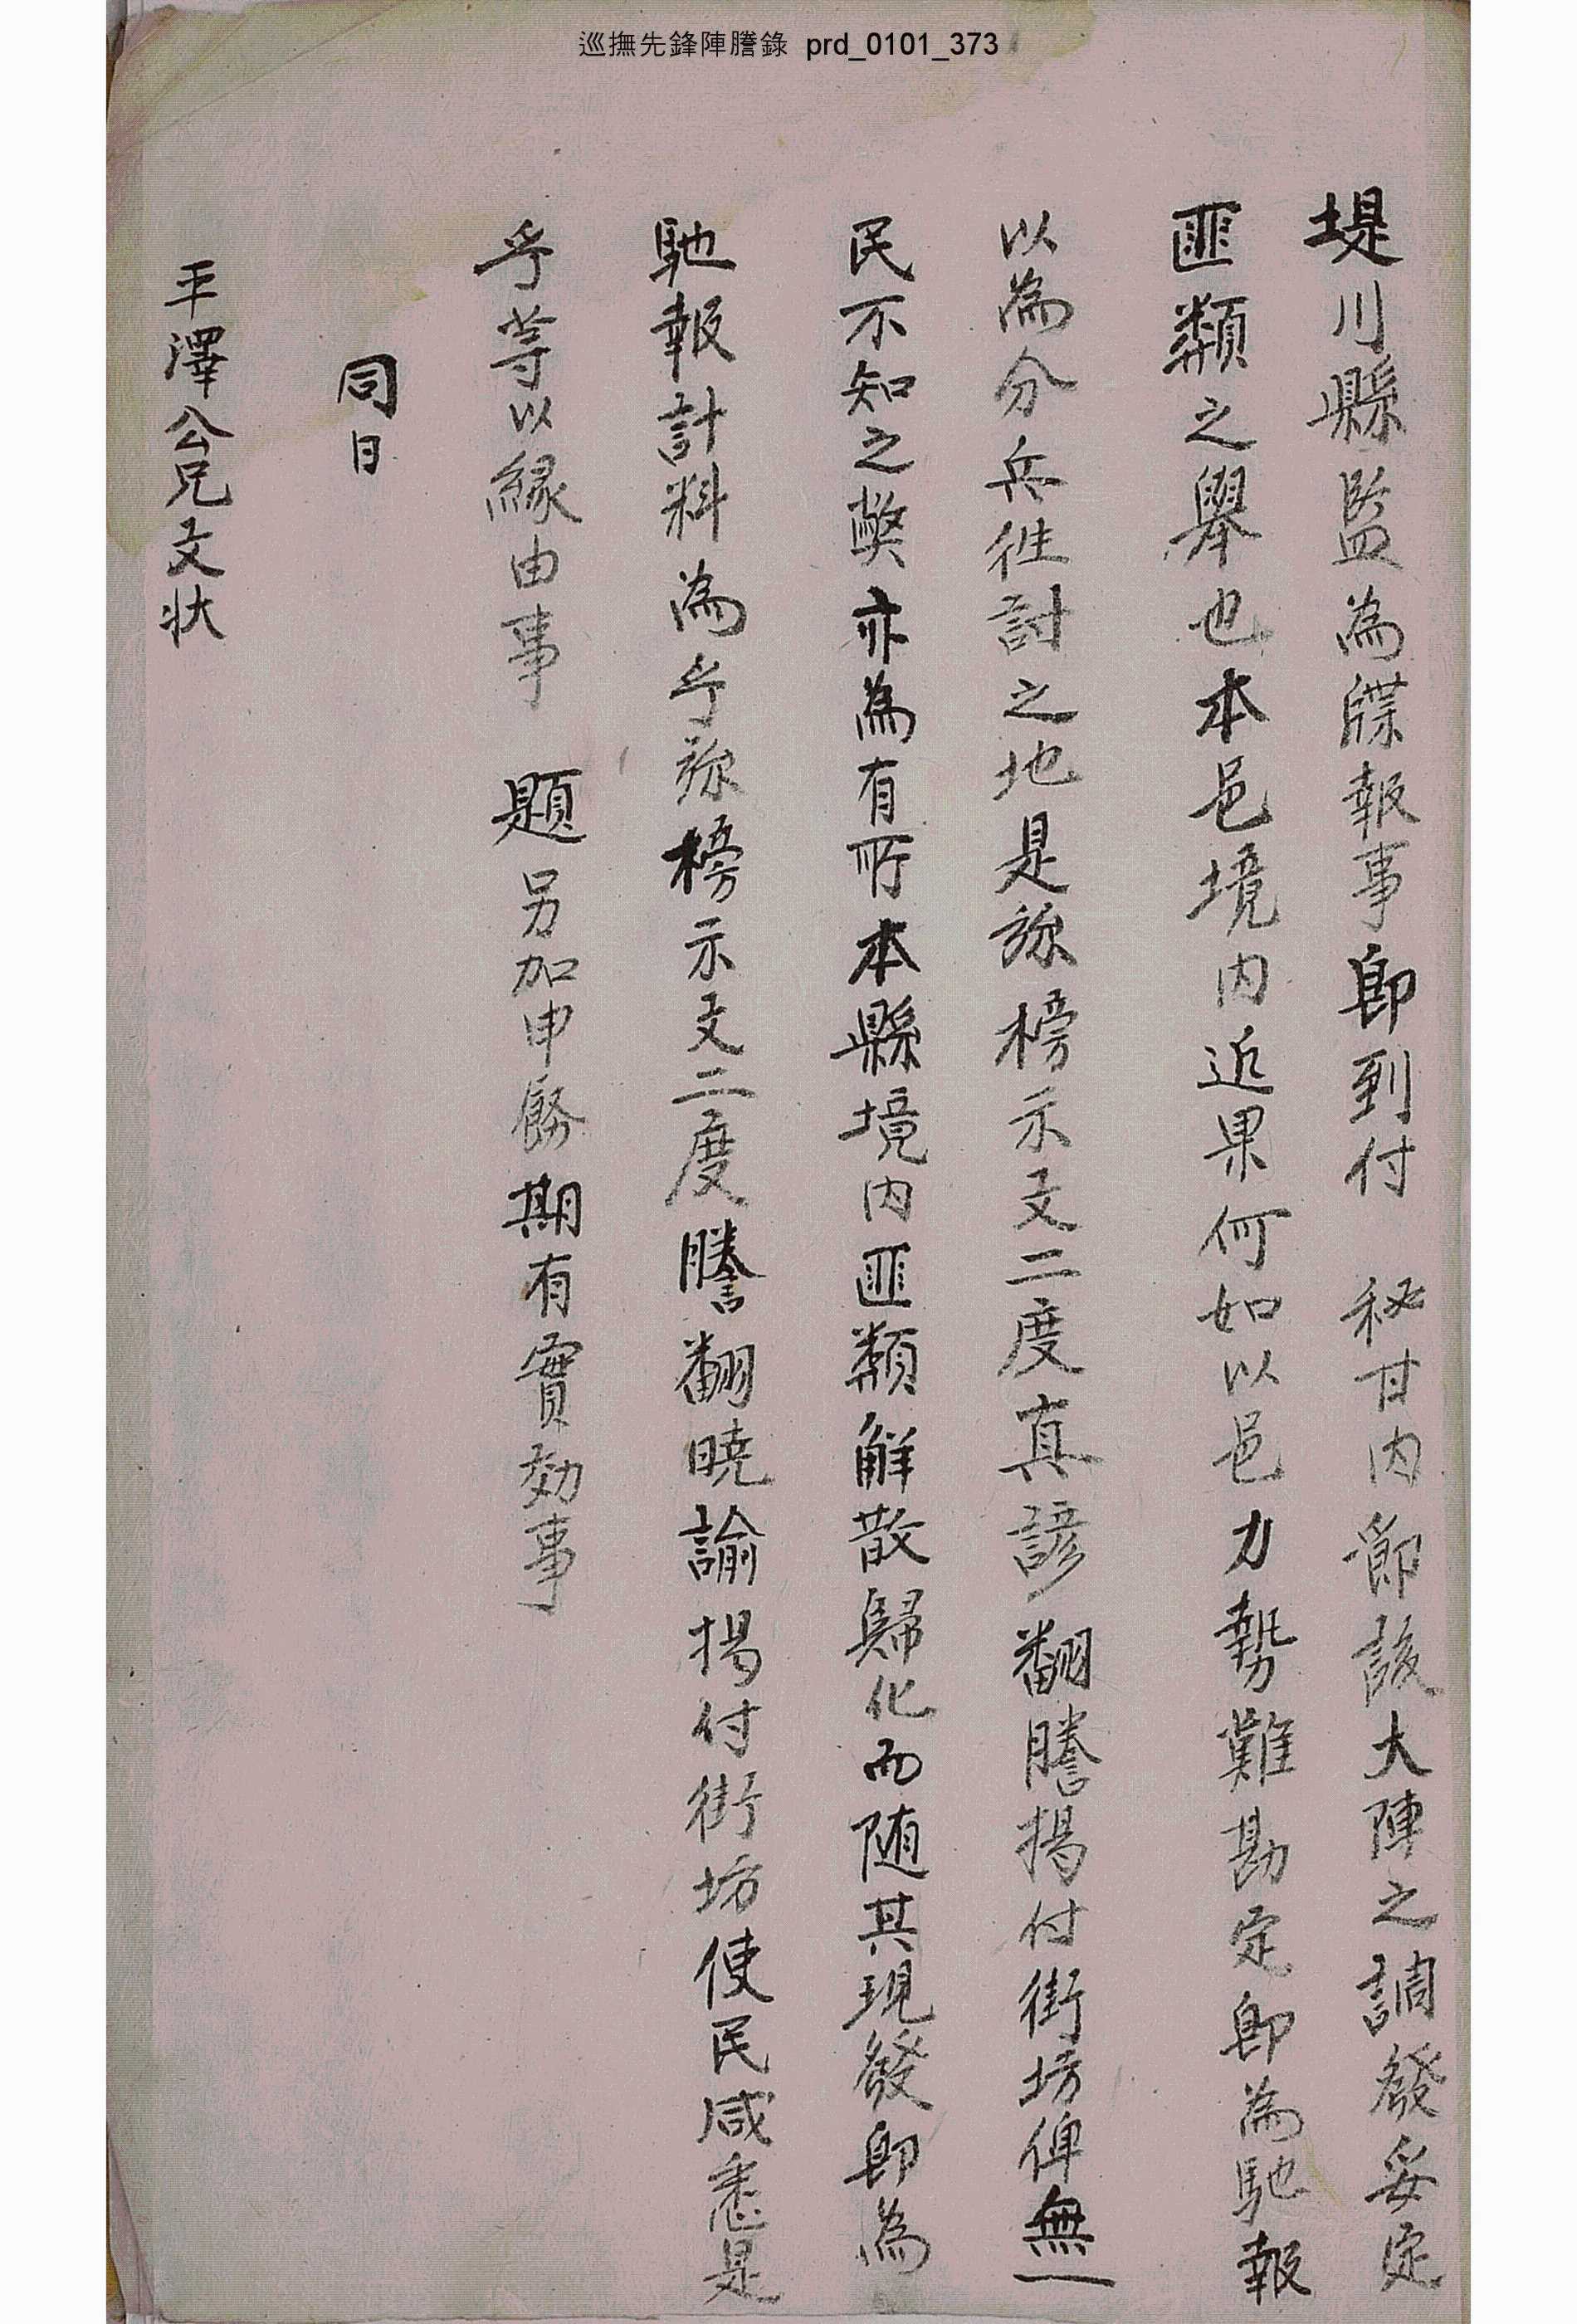 巡撫先鋒陣謄錄 prd_0101_373
堤川縣監為牒報事卽到付 秘甘內節該大陣之調發妥定
匪類之舉也本邑境內近果何如以邑力勢難勘定卽為馳報
以為分兵徃討之地是旀榜示文二度真諺翻謄揭付街坊俾無一
民不知之獘亦為有所本縣境內匪類解散歸化而随其現發卽為
馳報計料為乎旀榜示文二度謄翻曉諭揭付街坊使民咸悉是
乎等以緣由事 題另加申飭期有實効事
同日
平澤公兄文状